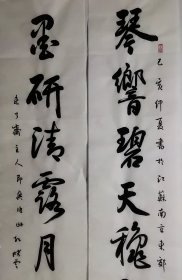 琴響碧天穐
己亥仲夏書於江蘇南京東郊
墨研清露月
齋主人